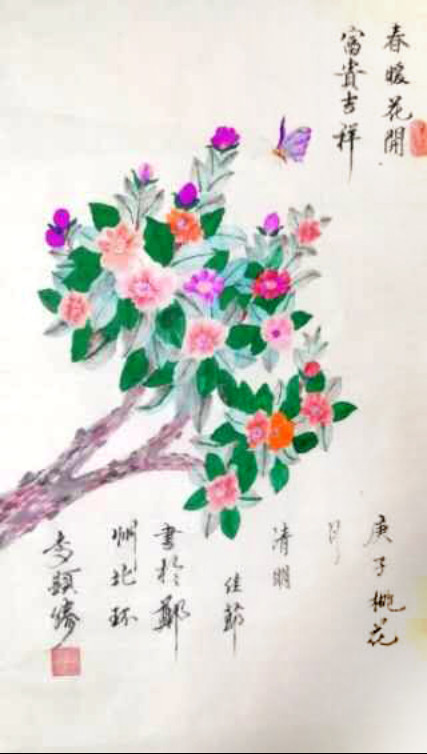 春暖花開
富貴吉祥
庚子桃花
月
清明
佳節
書於鄭
州北環